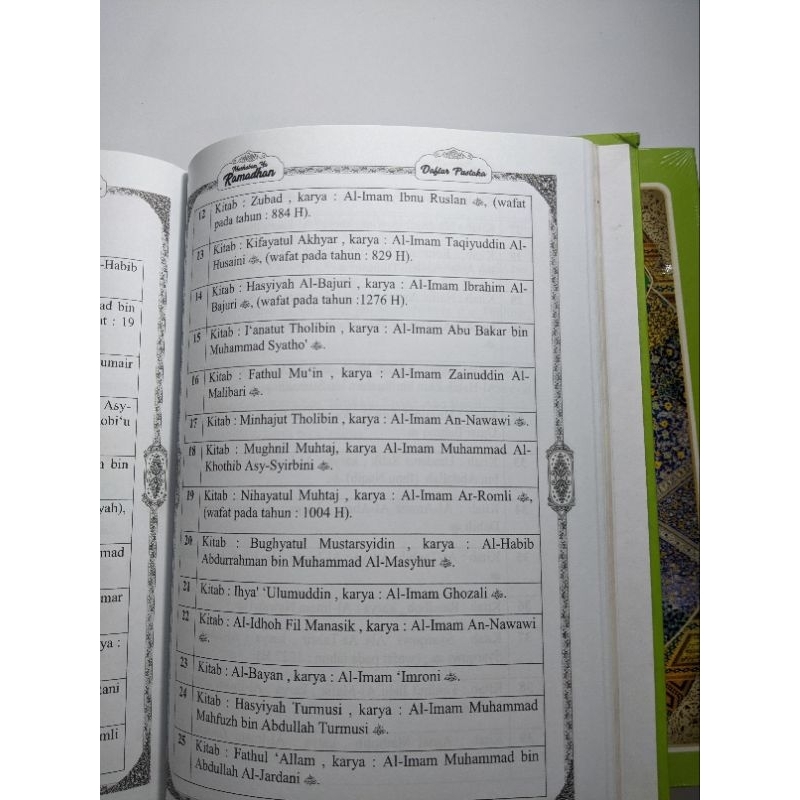 -Habib
ad bin
at : 19
umair
Asy-
obi‘u
n bin
yah),
mad
mar
ya :
tani
mli
Ramadhan
Daftar Pustaka
12 Kitab : Zubad , karya : Al-Imam Ibnu Ruslan ﷺ, (wafat
pada tahun : 884 H).
13 Kitab : Kifayatul Akhyar , karya : Al-Imam Taqiyuddin Al-
Husaini, (wafat pada tahun : 829 H).
14 Kitab : Hasyiyah Al-Bajuri , karya : Al-Imam Ibrahim Al-
Bajuri, (wafat pada tahun :1276 H).
15 Kitab : I‘anatut Tholibin , karya : Al-Imam Abu Bakar bin
Muhammad Syatho'.
16 Kitab : Fathul Mu‘in , karya : Al-Imam Zainuddin Al-
Malibari.
17 Kitab : Minhajut Tholibin , karya : Al-Imam An-Nawawi.
18 Kitab : Mughnil Muhtaj, karya Al-Imam Muhammad Al-
Khothib Asy-Syirbini.
19 Kitab : Nihayatul Muhtaj , karya : Al-Imam Ar-Romli,
(wafat pada tahun : 1004 H).
20 Kitab : Bughyatul Mustarsyidin , karya : Al-Habib
Abdurrahman bin Muhammad Al-Masyhur.
21 Kitab : Ihya' ‘Ulumuddin , karya : Al-Imam Ghozali.
22 Kitab : Al-Idhoh Fil Manasik , karya : Al-Imam An-Nawawi
.
23 Kitab : Al-Bayan , karya : Al-Imam ‘Imroni.
24 Kitab : Hasyiyah Turmusi , karya : Al-Imam Muhammad
Mahfuzh bin Abdullah Turmusi.
25 Kitab : Fathul ‘Allam , karya : Al-Imam Muhammad bin
Abdullah Al-Jardani.